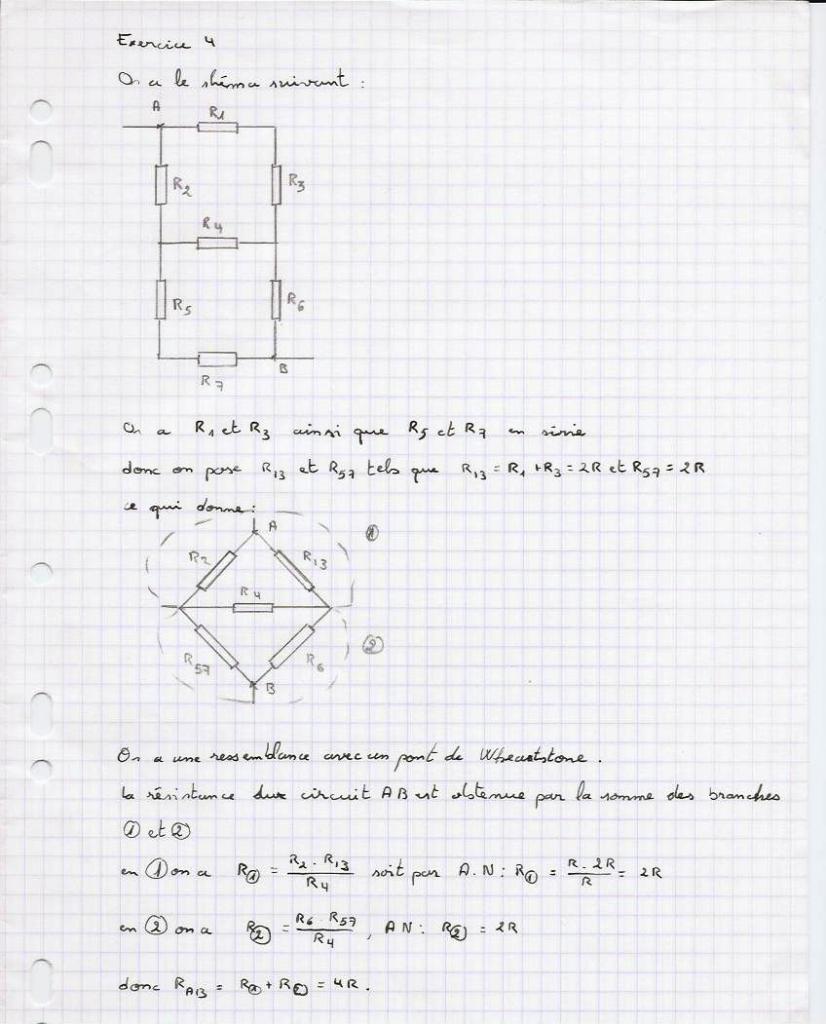 Exercice 4
On a le shéma suivant :
A
R1
R2
R3
R4
R5
R6
B
R7
On a R1 et R3 ainsi que R5 et R7 en série
donc on pose R13 et R57 tels que R13 = R1 + R3 = 2R et R57 = 2R
ce qui donne :
A
①
R2
R13
R4
②
R57
R6
B
On a une ressemblance avec un pont de Wheatstone.
la résistance du circuit AB est obtenue par la somme des branches
① et ②
en ① on a R① = R2 . R13 / R4 soit par A.N : R① = R . 2R / R = 2R
en ② on a R② = R6 . R57 / R4 , AN : R② = 2R
donc RAB = R① + R② = 4R.